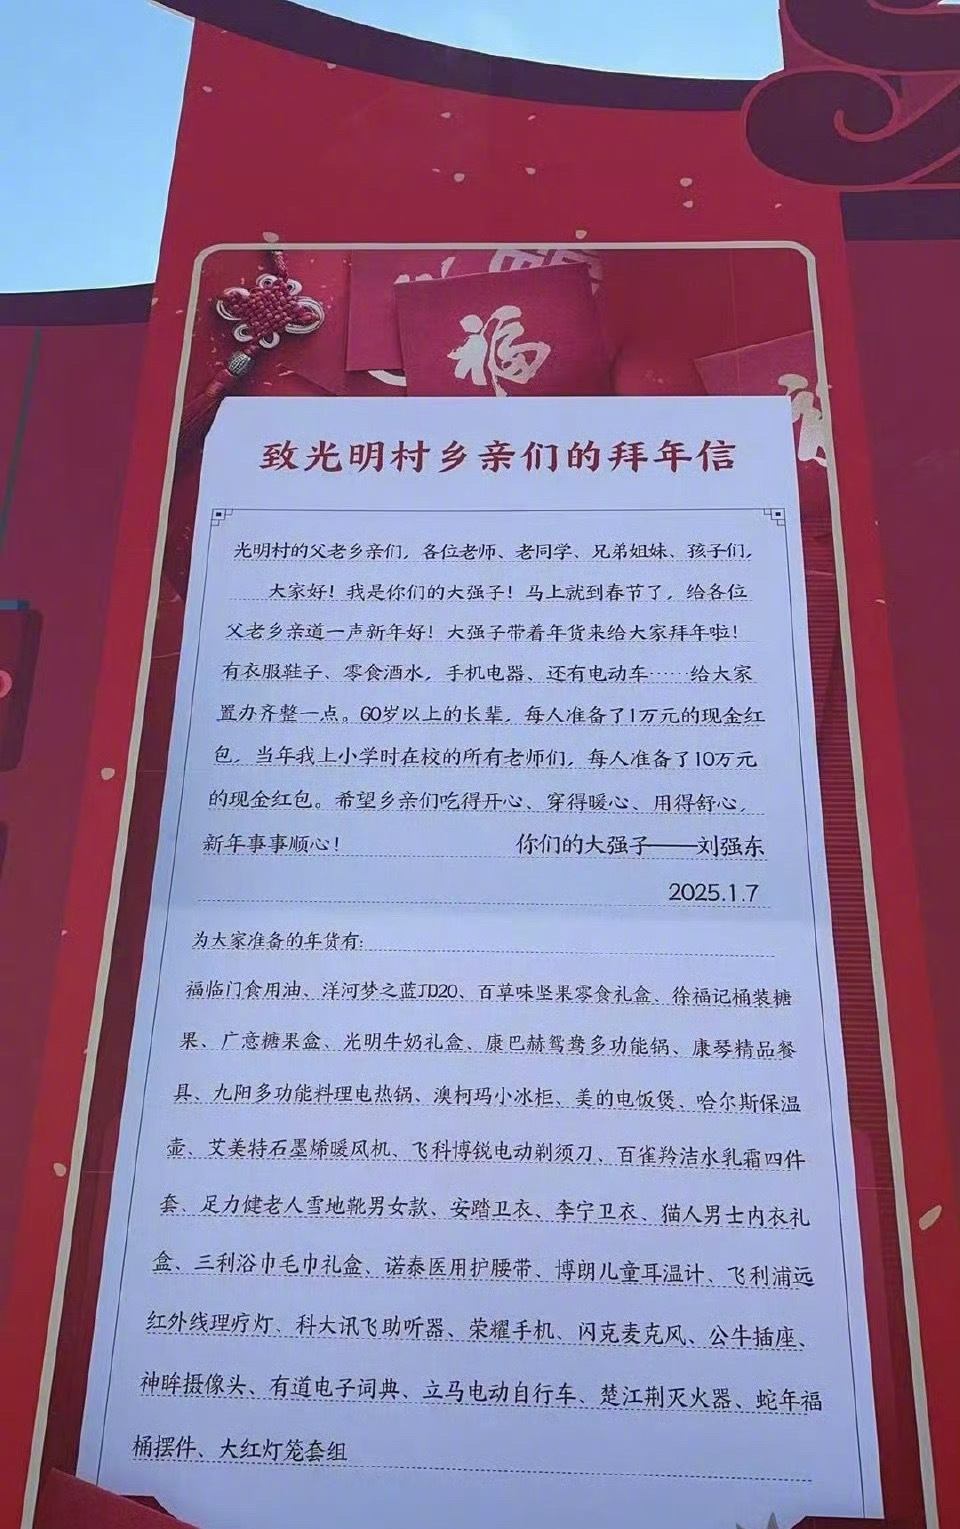 福
致光明村乡亲们的拜年信
光明村的父老乡亲们，各位老师、老同学、兄弟姐妹、孩子们，
大家好！我是你们的大强子！马上就到春节了，给各位
父老乡亲道一声新年好！大强子带着年货来给大家拜年啦！
有衣服鞋子、零食酒水，手机电器、还有电动车……给大家
置办齐整一点。60岁以上的长辈，每人准备了1万元的现金红
包，当年我上小学时在校的所有老师们，每人准备了10万元
的现金红包。希望乡亲们吃得开心、穿得暖心、用得舒心，
新年事事顺心！ 你们的大强子——刘强东
2025.1.7
为大家准备的年货有:
福临门食用油、洋河梦之蓝JD20、百草味坚果零食礼盒、徐福记桶装糖
果、广意糖果盒、光明牛奶礼盒、康巴赫鸳鸯多功能锅、康琴精品餐
具、九阳多功能料理电热锅、澳柯玛小冰柜、美的电饭煲、哈尔斯保温
壶、艾美特石墨烯暖风机、飞科博锐电动剃须刀、百雀羚洁水乳霜四件
套、足力健老人雪地靴男女款、安踏卫衣、李宁卫衣、猫人男士内衣礼
盒、三利浴巾毛巾礼盒、诺泰医用护腰带、博朗儿童耳温计、飞利浦远
红外线理疗灯、科大讯飞助听器、荣耀手机、闪克麦克风、公牛插座、
神眸摄像头、有道电子词典、立马电动自行车、楚江荆灭火器、蛇年福
桶摆件、大红灯笼套组